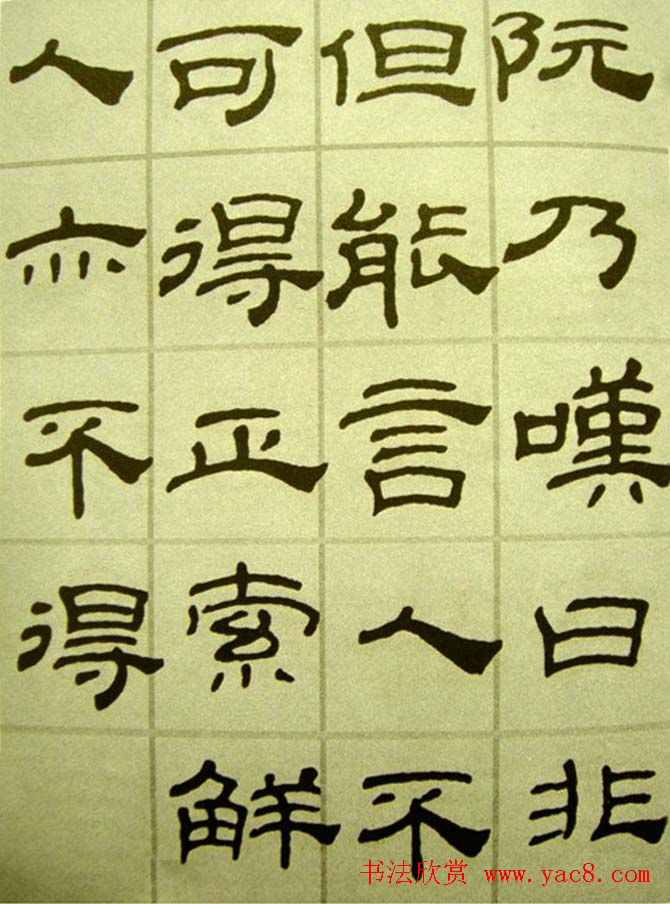 阮乃嘆曰非
但能言人不
可得正索解
人亦不得
书法欣赏 www.yac8.com